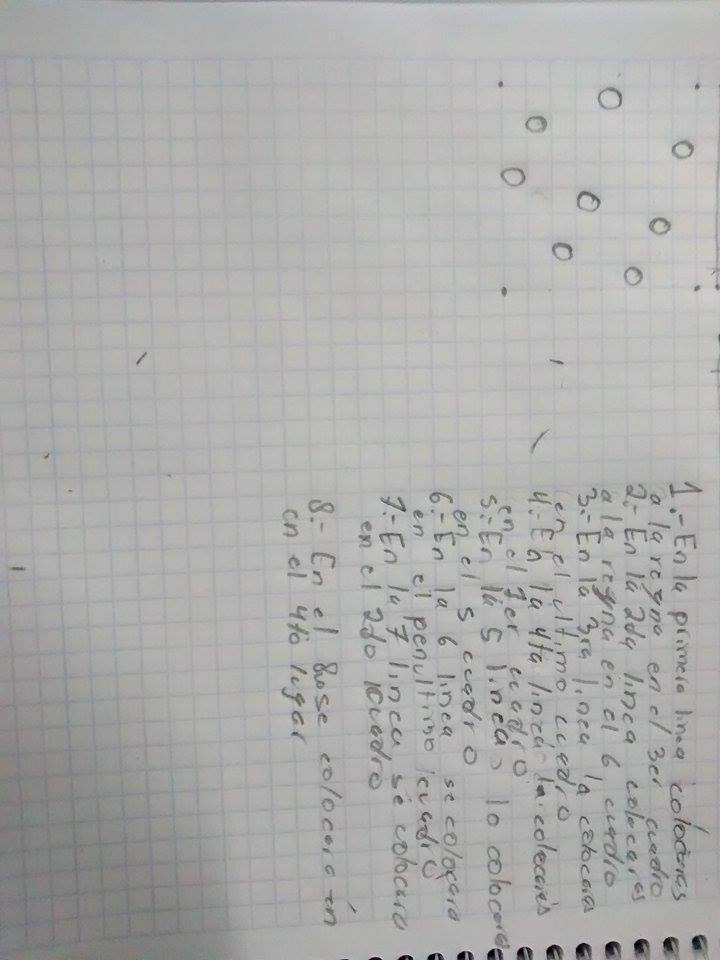 1.- En la primera linea colocaras
a la reyna en el 3er cuadro
2.- En la 2da linea colocaras
a la reyna en el 6 cuadro
3.- En la 3ra linea la colocaras
en el ultimo cuadro
4.- En la 4ta linea la colocarás
en el 1er cuadro
5.- En la 5 linea lo colocaras
en el 5 cuadro
6.- En la 6 linea se colocara
en el penultimo cuadro
7.- En la 7 linea se colocara
en el 2do cuadro
8.- En el 8 se colocara en
en el 4to lugar